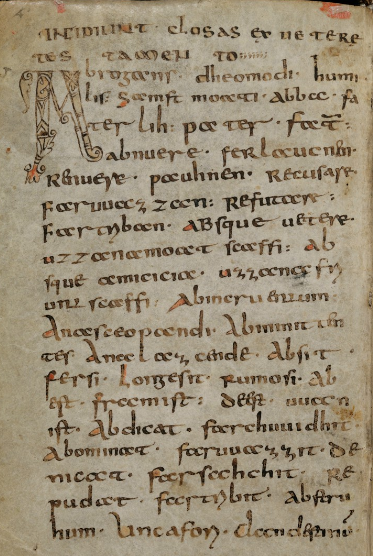 INCIPIUNT CLOSAS EX UETERE
TES TAMEN TO
Abrogans. dheomodi. humi
lis. samft moati. abbae. fa
ter lih: pater. fat:
abnuere. ferlaucnen.
Renuere. pauhnen. Recusare
faruuazzan: Refutare:
fartriban. Absque uetere.
uzzana moat scaffi: Ab
sque amicicia. uzzana fri
unt scaffi.
Anascaopandi. Abminiten
tes Analazende. Absit.
fersi. longesit. Rumosi. Ab
est. framist: deest. uuan
ist. Abdicat. farchuuidhit.
Abominat. faruuazzit. De
micat. farsechchit. Re
pudat. fartribit. Abstru
hum. Incafon.